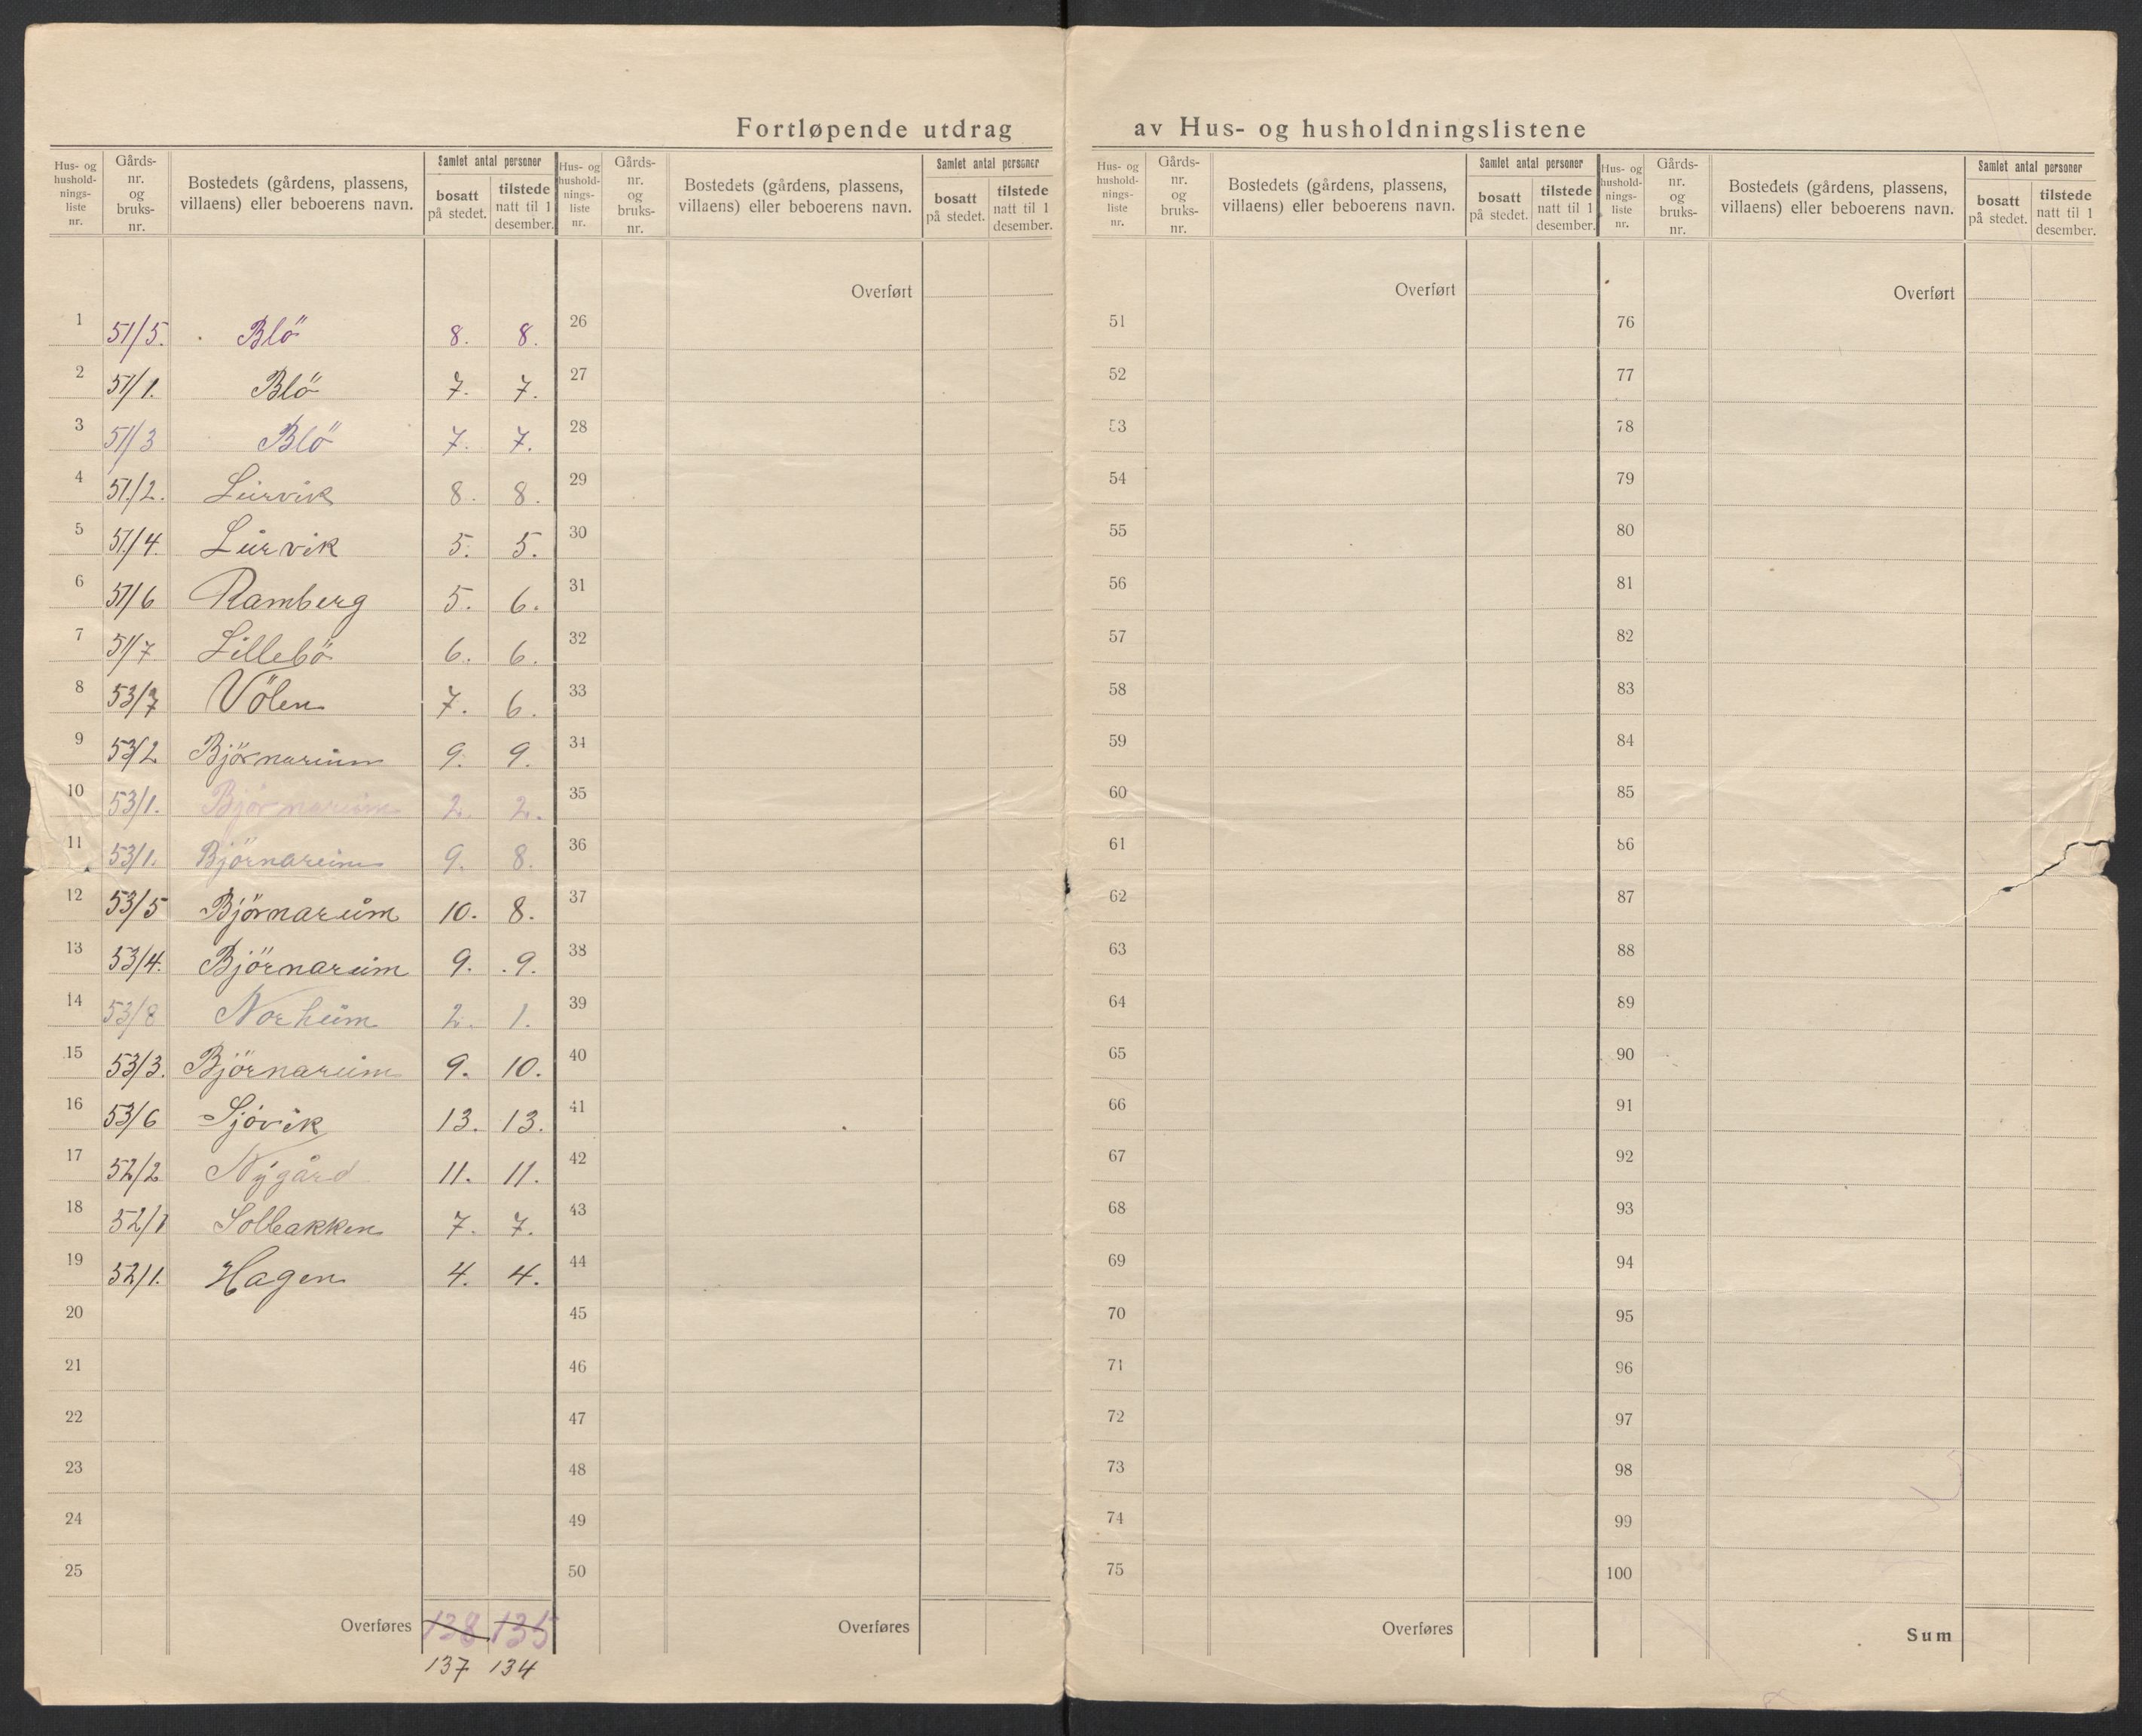 Fortløpende utdrag av Hus- og husholdningslistene
Hus- og hushold- nings- liste nr. | Gårds- nr. og bruks- nr. | Bostedets (gårdens, plassens, villaens) eller beboerens navn. | Samlet antal personer | bosatt på stedet. | tilstede natt til 1 desember.
Hus- og hushold- nings- liste nr. | Gårds- nr. og bruks- nr. | Bostedets (gårdens, plassens, villaens) eller beboerens navn. | Samlet antal personer | bosatt på stedet. | tilstede natt til 1 desember.
Hus- og hushold- nings- liste nr. | Gårds- nr. og bruks- nr. | Bostedets (gårdens, plassens, villaens) eller beboerens navn. | Samlet antal personer | bosatt på stedet. | tilstede natt til 1 desember.
Hus- og hushold- nings- liste nr. | Gårds- nr. og bruks- nr. | Bostedets (gårdens, plassens, villaens) eller beboerens navn. | Samlet antal personer | bosatt på stedet. | tilstede natt til 1 desember.
Overført Overført Overført
1 51/5. Blö 8. 8. 26 51 76
2 51/1. Blö 7. 7. 27 52 77
3 51/3 Blö 7. 7. 28 53 78
4 51/2. Leirvik 8. 8. 29 54 79
5 51/4. Leirvik 5. 5. 30 55 80
6 51/6 Ramberg 5. 6. 31 56 81
7 51/7 Lillebö 6. 6. 32 57 82
8 53/7 Völen 7. 6. 33 58 83
9 53/2 Björnareim 9. 9. 34 59 84
10 53/1. Björnareim 2. 2. 35 60 85
11 53/1. Björnareim 9. 8. 36 61 86
12 53/5 Björnareim 10. 8. 37 62 87
13 53/4. Björnareim 9. 9. 38 63 88
14 53/8 Norheim 2. 1. 39 64 89
15 53/3. Björnareim 9. 10. 40 65 90
16 53/6 Sjövik 13. 13. 41 66 91
17 52/2 Nygård 11. 11. 42 67 92
18 52/1 Solbakken 7. 7. 43 68 93
19 52/1. Hagen 4. 4. 44 69 94
20 45 70 95
21 46 71 96
22 47 72 97
23 48 73 98
24 49 74 99
25 50 75 100
Overføres 138 135 Overføres Overføres Sum
137 134